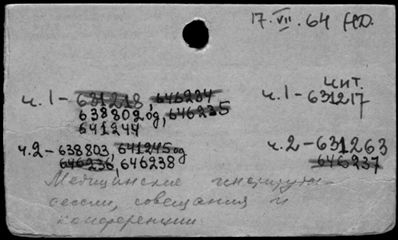 17.VII.64
чит.
ч.1 - 631218, 646234 ч.1 - 631217
638802 од, 646235
641244
ч.2 - 638803, 641245 од ч.2 - 631263
646236, 646238 646237
Медицинские институты -
сессии, совещания и
конференции.